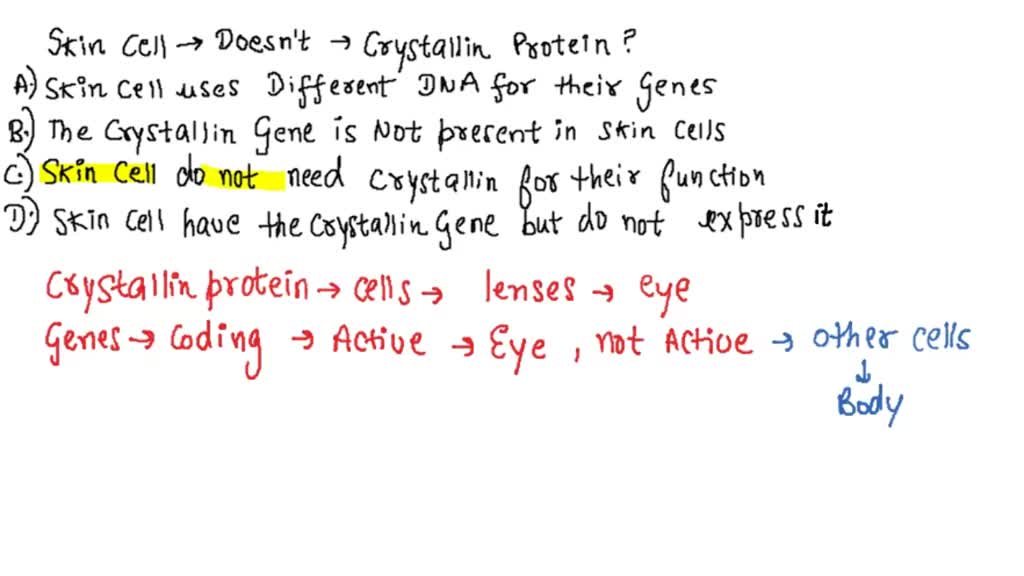 Skin Cell → Doesn't → Crystallin Protein ?
A.) Skin Cell uses Different DNA for their Genes
B.) The Crystallin Gene is Not present in skin cells
C.) Skin Cell do not need crystallin for their function
D.) Skin Cell have the Crystallin Gene but do not express it
Crystallin protein → cells → lenses → eye
Genes → Coding → Active → Eye , not Active → other cells
↓
Body